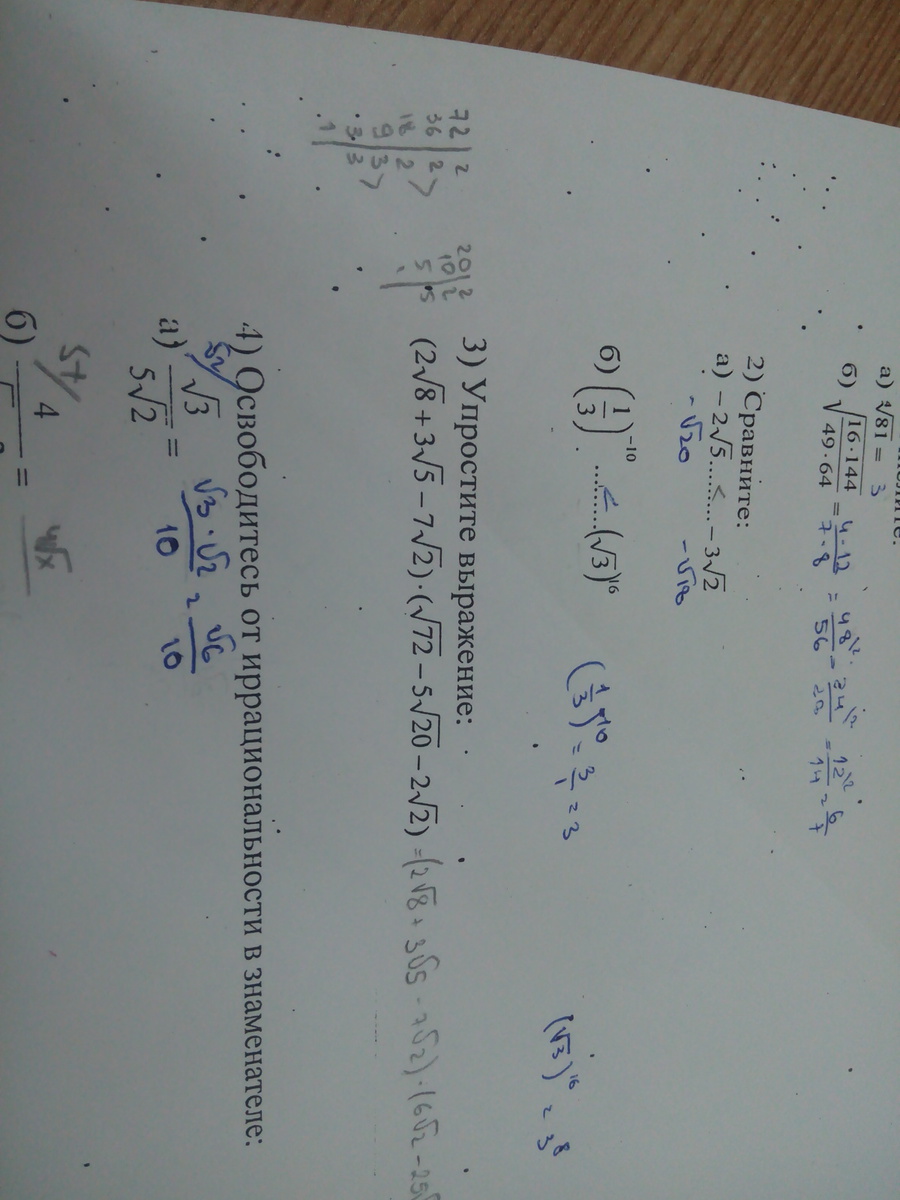 а) ∜81 = 3
б) √(16·144/49·64) = 4·12/7·8 = 48/56 = 24/28 = 12/14 = 6/7
2) Сравните:
а) −2√5.......<.... −3√2
−√20 −√18
б) (1/3)⁻¹⁰ ....<......(√3)¹⁶ (1/3)⁻¹⁰ = 3/1 = 3 (√3)¹⁶ = 3⁸
3) Упростите выражение:
(2√8 + 3√5 − 7√2)·(√72 − 5√20 − 2√2) = (2√8 + 3√5 - 7√2)·(6√2 - 25
72 | 2
36 | 2
18 | 2
9 | 3
3 | 3
1
20 | 2
10 | 2
5 | 5
4) Освободитесь от иррациональности в знаменателе:
а) √3/5√2 = √3·√2/10 = √6/10
б) 4/√ =